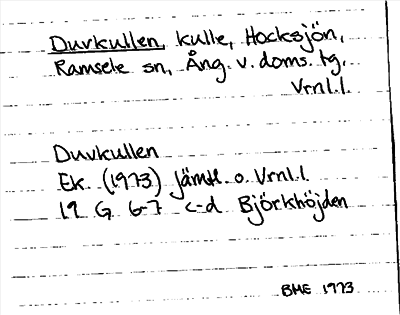 Duvkullen, kulle, Hocksjön,
Ramsele sn, Ång. v. doms. tg.
Vrnl.l.
Duvkullen
Ek. (1973) Jämtl. o. Vrnl.l.
19 G 6-7 c-d Björkhöjden
BME 1973